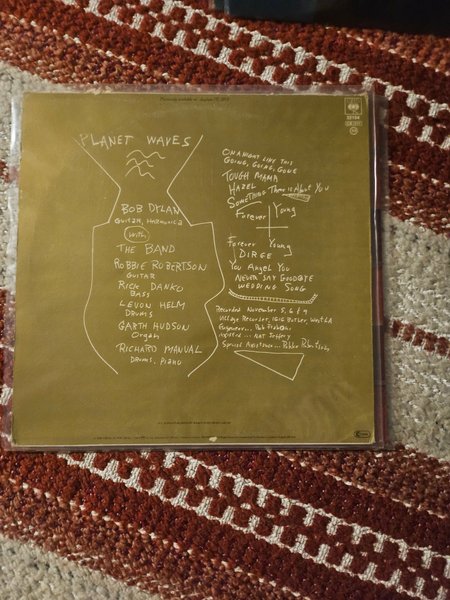 PLANET WAVES
BOB DYLAN
GUITAR, HARMONICA
with
THE BAND
ROBBIE ROBERTSON
GUITAR
RICK DANKO
BASS
LEVON HELM
DRUMS
GARTH HUDSON
Organ
RICHARD MANUAL
DRUMS, PIANO
ON A NIGHT LIKE THIS
GOING, GOING, GONE
TOUGH MAMA
HAZEL
SOMETHING There is About You
Forever Young
Forever Young
DIRGE
You Angel You
NEVER SAY GOODBYE
WEDDING SONG
Recorded November 5, 6 & 9
Village Recorder, 1616 Butler, West LA
Engineer... Rob Fraboni
Special Assistance... Robbie Robertson
CBS
32154